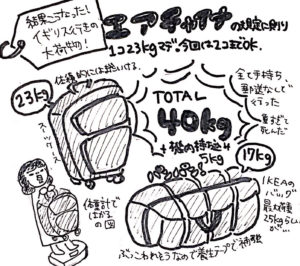 結果こうなった!
イギリス行きの
大荷物!
エアチャイナの規定に則り
1コ23kgマデ。今回は2コまでOK.
23kg
体積的にはまだいける.
スーツケース
TOTAL
40kg
+機内持込
5kg
全て手持ち、
郵送なしで
重すぎて
死んだ
17kg
IKEAの
バッグ
最大荷重
25kgらしい
が…
体重計で
はかる
の図
ぶっこわれそうなので養生テプで補強